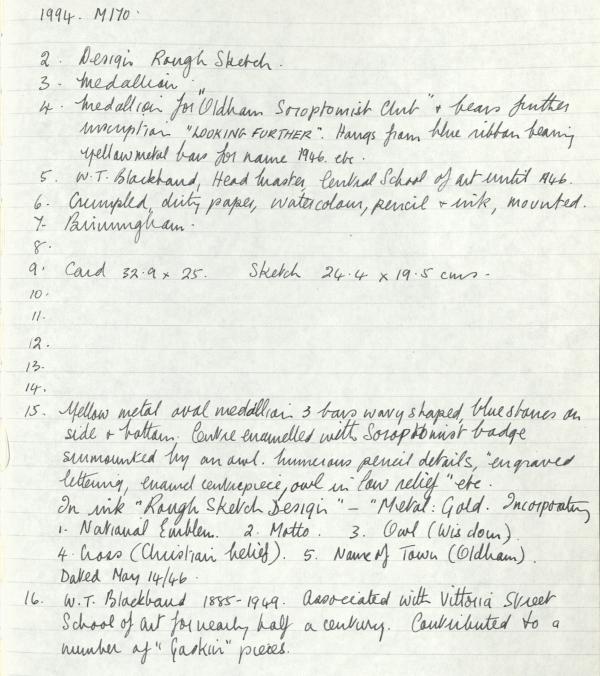 1994. M170.
2. Design Rough Sketch.
3. Medallion.
4. Medallion for "Oldham Soroptomist Club" + bears further
inscription "LOOKING FURTHER". Hangs from blue ribbon bearing
yellow metal bars for name 1946. etc.
5. W.T. Blackband, Head Master, Central School of art until 1946.
6. Crumpled, dirty paper, watercolour, pencil + ink, mounted.
7. Birmingham.
8.
9. Card 32.9 x 25. Sketch 24.4 x 19.5 cms.
10.
11.
12.
13.
14.
15. Yellow metal oval medallion 3 bars wavy shaped, blue stones on
side + bottom. Centre enamelled with Soroptomist badge
surmounted by an owl. Numerous pencil details, "engraved
lettering, enamel centrepiece, owl in low relief" etc.
In ink "Rough Sketch Design" – "Metal: Gold. Incorporating
1. National Emblem. 2. Motto. 3. Owl (Wisdom).
4. Cross (Christian belief). 5. Name of Town (Oldham).
Dated May 14/46.
16. W.T. Blackband 1885-1949. Associated with Vittoria Street
School of art for nearly half a century. Contributed to a
number of "Gaskin" pieces.